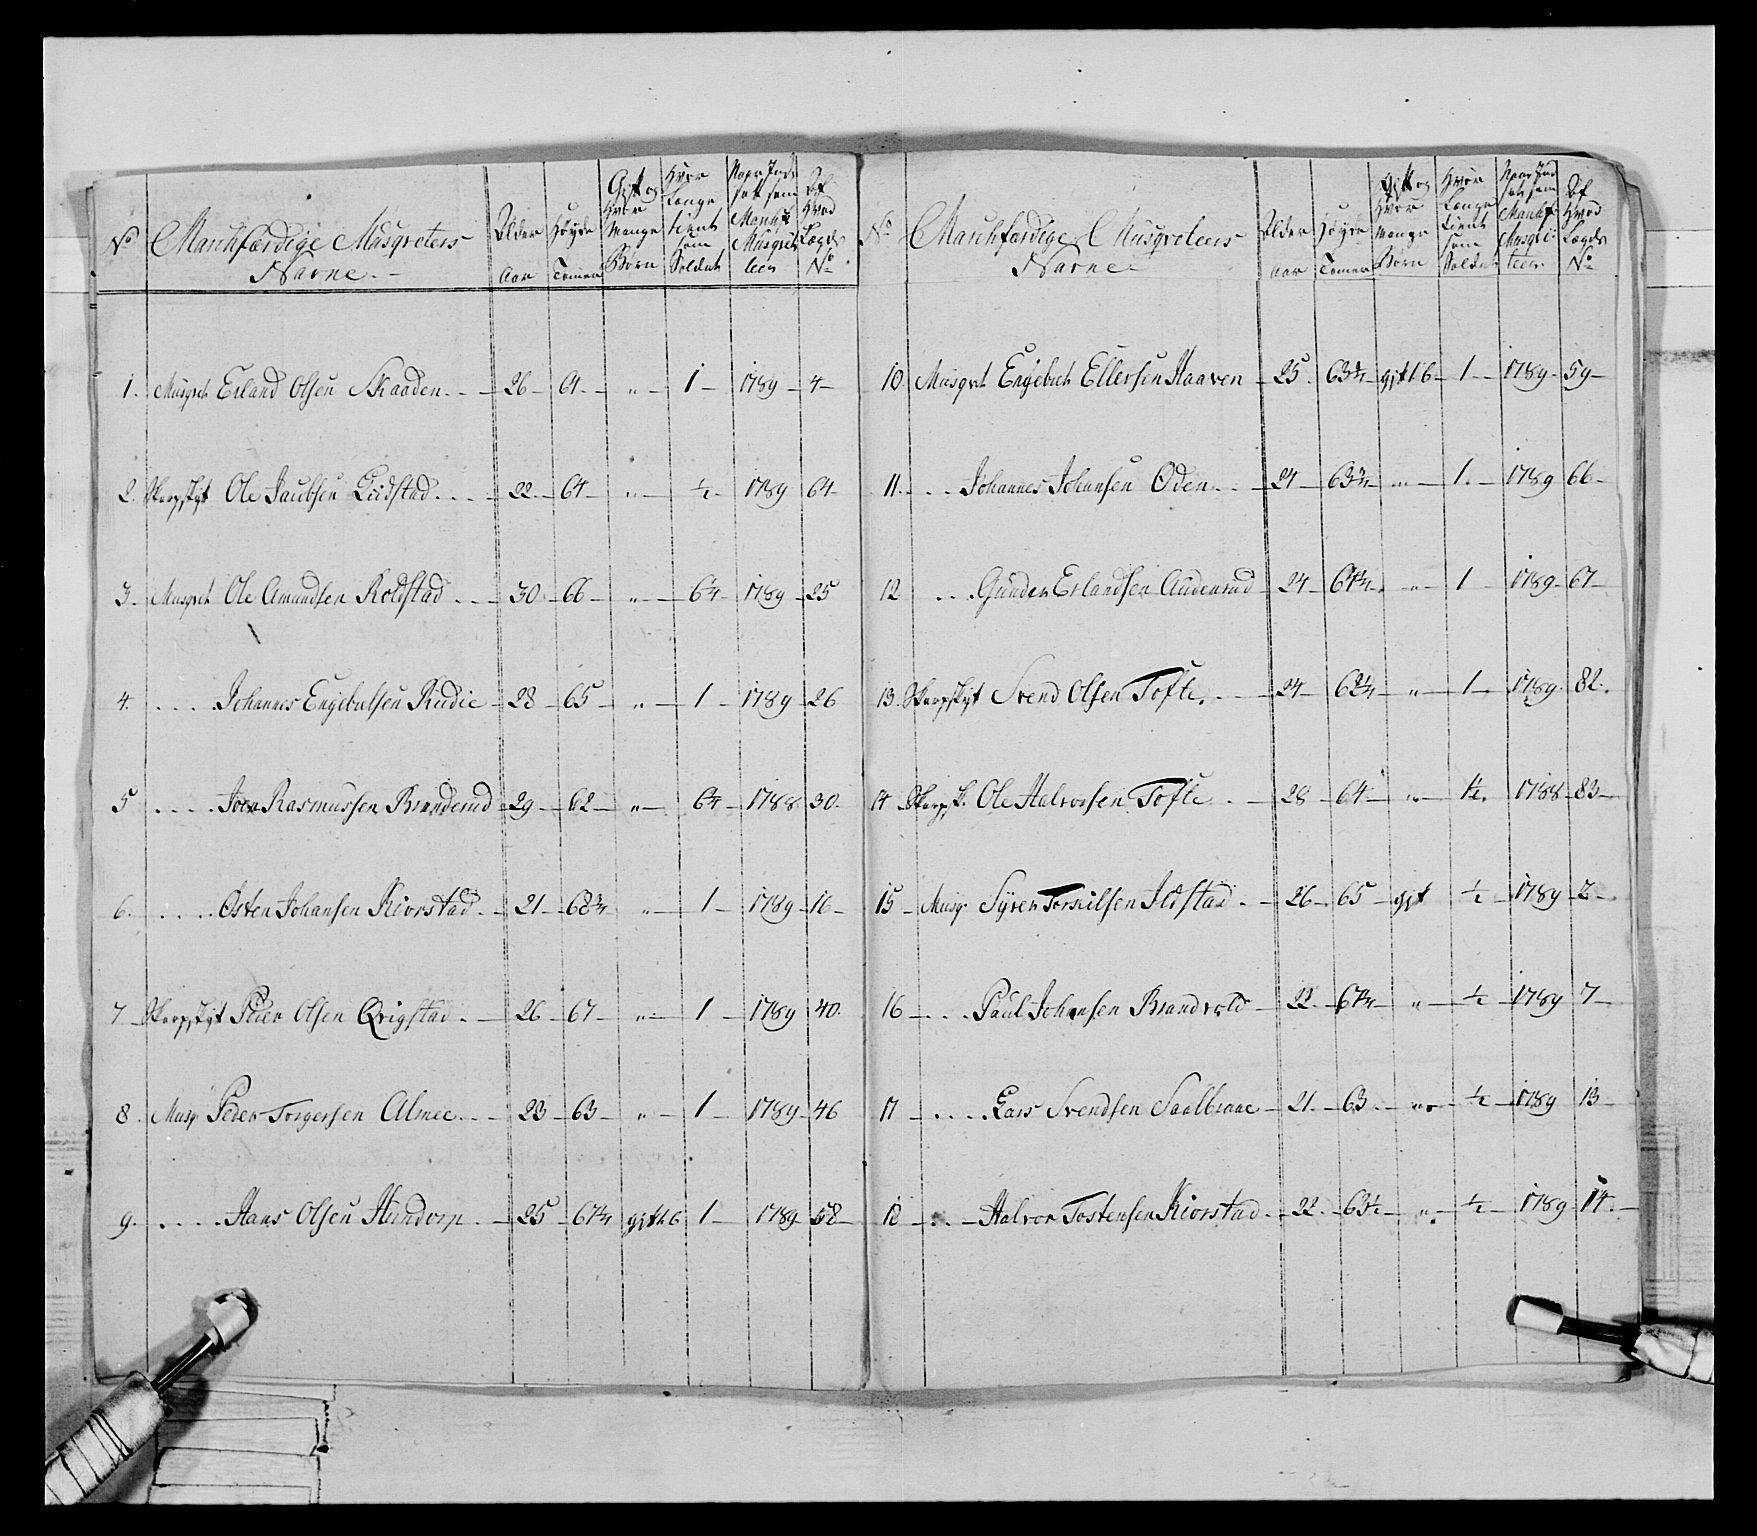 No Marchfærdige Musqveteers Navne Alder Aar Høyde Tomer Gift og Hvor Mange Børn Hvor Længe tient som Soldat Naar Indsat som Marchf: Musqveteer Af Hvad Lægds No
1. Musqvet Erland Olsen Skaaden 26 61 „ 1 1789 4
2. Skarpskyt Ole Jacobsen Lidstad 22 64 „ ½ 1789 64
3. Musqvet Ole Amundsen Roldstad 30 66 „ 6¼ 1789 25
4. Johannes Engebretsen Rudie 28 65 „ 1 1789 26
5 Joen Rasmussen Branderud 29 62 „ 6¼ 1788 30
6. Østen Johansen Kiorstad 21 62¾ „ 1 1789 16
7 Skarpskyt Peder Olsen Qvigstad 26 67 „ 1 1789 40
8. Musq Peder Torgersen Almee 23 63 „ 1 1789 46
9. Hans Olsen Hundorp 25 67¼ gift 1 1789 58
No Marchfærdige Musqveteers Navne Alder Aar Høyde Tomer Gift og Hvor Mange Børn Hvor Længe tient som Soldat Naar Indsat som Marchf: Musqveteer Af Hvad Lægds No
10 Musqvet Engebret Ellersen Haaven 25 63¼ gift 1 1789 59
11. Johannes Johansen Oden 24 63¾ „ 1 1789 66
12 Gunder Erlandsen Audenrud 24 64¾ „ 1 1789 67
13. Skarpskyt Svend Olsen Tofte 24 62¼ „ 1 1789 82
14 Skarpsk. Ole Halvorsen Tofte 28 64 „ 1½ 1788 83
15 Musq. Syver Torkilsen Ildstad 26 65 gift ½ 1789 2
16 Paul Johansen Brandvold 22 67¼ „ ½ 1789 7
17 Lars Svendsen Saalbraae 21 63 „ ½ 1789 13
18 Halvor Tostensen Kiorstad 22 63½ „ ½ 1789 14